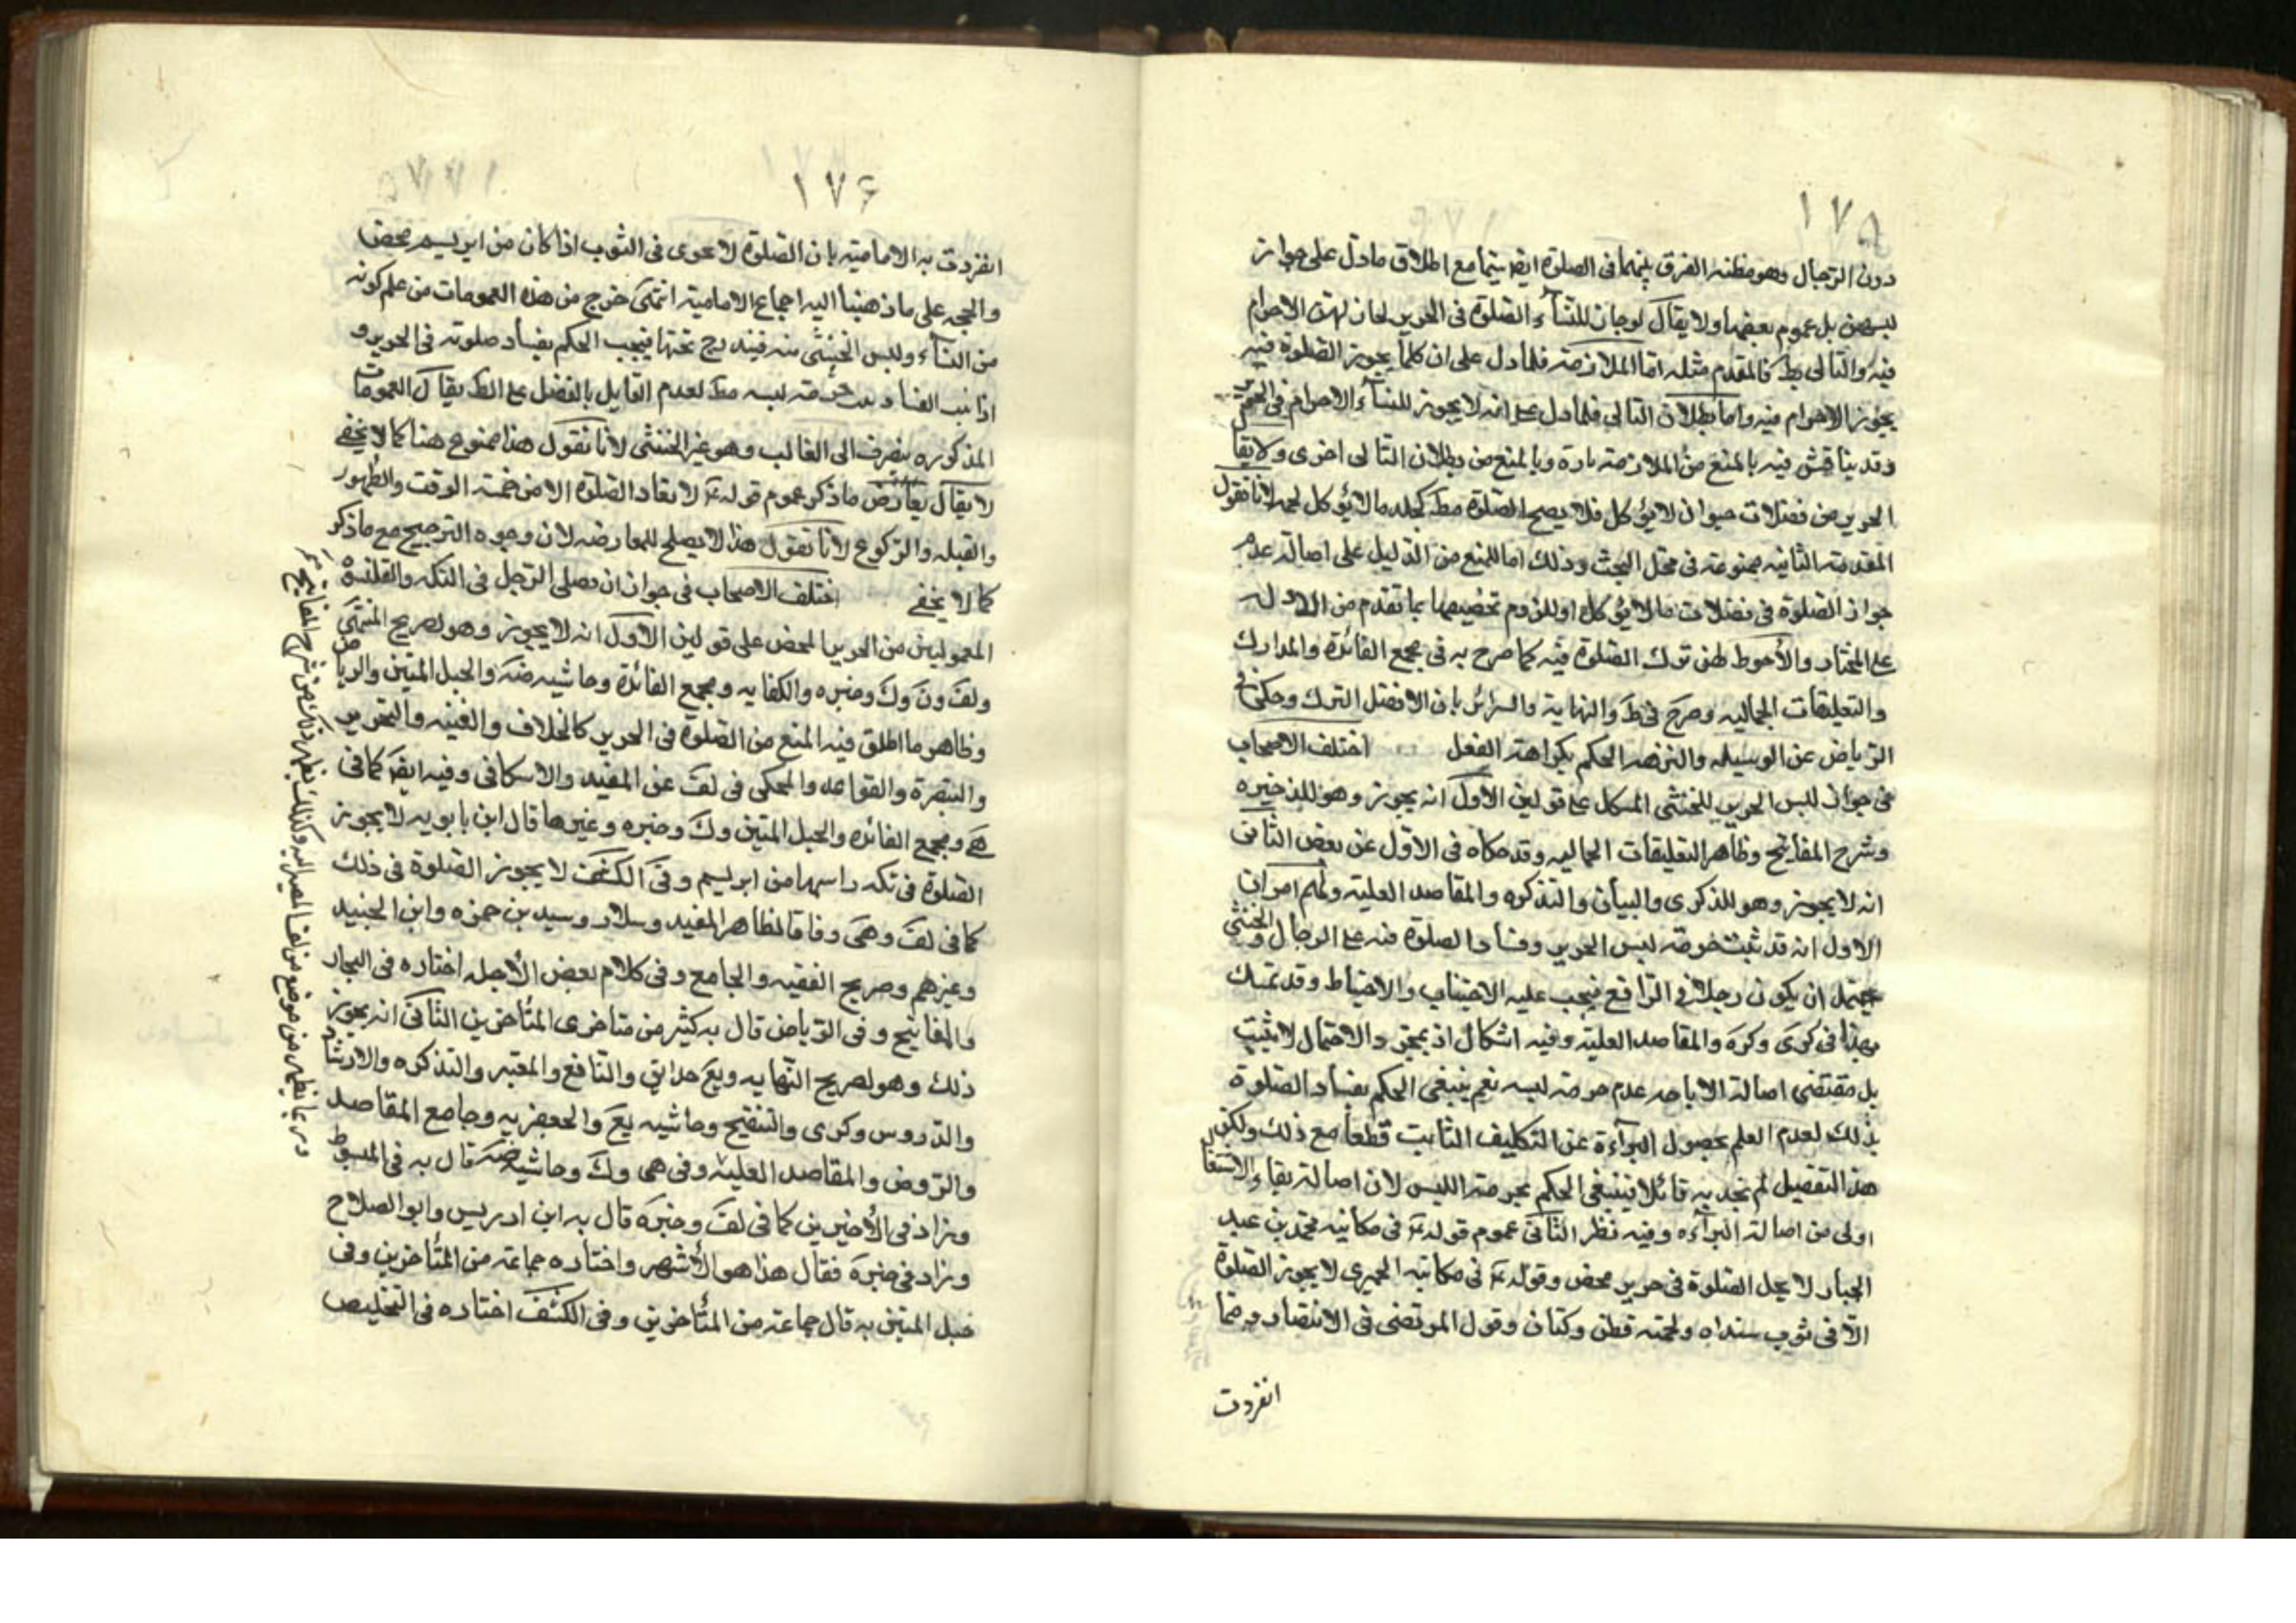 ١٧٥
دون الرجال وهو مظنه الفرق بينهما فى الصلوة ايضا سيما مع اطلاق مادل على جواز
لبسهن بل عموم بعضها ولا يقال لو جاز للنساء الصلوة فى الحرير لجاز لهن الاحرام
فيه والتالى بط فالمقدم مثله اما الملازمة فلما دل على ان كلما يجوز الصلوة فيه
يجوز الاحرام فيه واما بطلان التالي فلما دل على انه لا يجوز للنساء الاحرام فى الحرير
وقد يناقش فيه بالمنع من الملازمة تارة وبالمنع من بطلان التالى اخرى ولا يقال
الحرير من فضلات حيوان لا يؤكل فلا يصح الصلوة مط كجلد مالا يؤكل لحمه لانا نقول
المقدمة الثانيه ممنوعة فى محل البحث وذلك اما للمنع من الدليل على اصالة عدم
جواز الصلوة فى فضلات مالا يؤكل او للزوم تخصيصها بما تقدم من الادله
على المختار والأحوط لهن ترك الصلوة فيه كما صرح به فى مجمع الفائدة والمدارك
والتعليقات الجماليه وصرح فى ط والنهاية والسرائر بان الافضل الترك وحكى فى
الرياض عن الوسيله والنزهه الحكم بكراهة الفعل اختلف الاصحاب
فى جواز لبس الحرير للخنثى المشكل على قولين الاول انه يجوز وهو للذخيره
وشرح المفاتيح وظاهر التعليقات الجماليه وقد حكاه فى الاول عن بعض الثانى
انه لا يجوز وهو للذكرى والبيان والتذكره والمقاصد العلية ولهم امران
الاول انه قد ثبت حرمة لبس الحرير وفساد الصلوة فيه على الرجال والخنثى
يحتمل ان يكون رجلا فى الواقع فيجب عليه الاجتناب والاحتياط وقد تمسك
بهذا فى كرى وكره والمقاصد العلية وفيه اشكال اذ بمجرد الاحتمال لا يثبت
بل مقتضى اصالة الاباحه عدم حرمة لبسه نعم ينبغى الحكم بفساد الصلوة
بذلك لعدم العلم بحصول البراءة عن التكليف الثابت قطعا مع ذلك ولكن
هذا التفصيل لم نجد به قائلا فينبغى الحكم بحرمة اللبس لان اصالة بقاء الاشتغال
اولى من اصالة البراءه وفيه نظر الثانى عموم قوله ع فى مكاتبه محمد بن عبد
الجبار لا يحل الصلوة فى حرير محض وقوله ع فى مكاتبه الحميرى لا يجوز الصلوة
الا فى ثوب سداه ولحمته قطن وكتان وقول المرتضى فى الانتصار ومما
انفردت
١٧۶
انفردت به الامامية بان الصلوة لا تجوى فى الثوب اذا كان من ابريسم محض
والحجه على ما ذهبنا اليه اجماع الامامية انتهى خرج من هذه العمومات من علم كونه
من النساء وليس الخنثى منه فيندرج تحتها فيجب الحكم بفساد صلوته فى الحرير و
اذا ثبت الفساد ثبت حرمة لبسه مط لعدم القايل بالفصل على الظ يقال العمومات
المذكوره ينصرف الى الغالب وهو غير الخنثى لانا نقول هذا ممنوع هنا كما لا يخفى
لا يقال يعارض ما ذكر عموم قوله ع لا تعاد الصلوة الا من خمسة الوقت والطهور
والقبله والركوع لانا نقول هذا لا يصلح للمعارضه لان وجوه الترجيح مع ماذكر
كما لا يخفى اختلف الاصحاب فى جواز ان يصلى الرجل فى التكه والقلنسوة
المعموليتن من الحرير المحض على قولين الاول انه لا يجوز وهو لصريح المنتهى
ولف ون وك وخيره والكفايه ومجمع الفائدة وحاشيه ضه والحبل المتين والرياض
وظاهر ما اطلق فيه المنع من الصلوة فى الحرير كالخلاف والغنيه والتحرير
والتبصرة والقواعد والمحكى فى لف عن المفيد والاسكافى وفيه ايضا كما فى
هى ومجمع الفائده والحبل المتين وك وخيره وغيرها قال ابن بابويه لا يجوز
الصلوة فى تكه راسها من ابريسم وفى الكشف لا يجوز الصلوة فى ذلك
كما فى لف وهى وفاقا لظاهر المفيد وسلار وسيد بن حمزه وابن الجنيد
وغيرهم وصريح الفقيه والجامع وفى كلام بعض الأجله اختاره فى البحار
والمفاتيح وفى الرياض قال به كثير من متاخرى المتأخرين الثانى انه يجوز
ذلك وهو لصريح النهايه ويع حدائق والنافع والمعتبر والتذكره والارشاد
والدروس وكرى والتنقيح وحاشيه يع والجعفريه وجامع المقاصد
والروض والمقاصد العلية وفى هى وك وحاشيه ضه قال به فى المبسوط
وزاد فى الأخيرين كما فى لف وخيره قال به ابن ادريس وابو الصلاح
وزاد فى خيره فقال هذا هو الأشهر واختاره جماعة من المتأخرين وفى
حبل المتين به قال جماعة من المتأخرين وفى الكشف اختاره فى التخليص
وربما يظهر من موضع من لف المصير اليه وكذلك يظهر ذلك من شرح المفاتيح